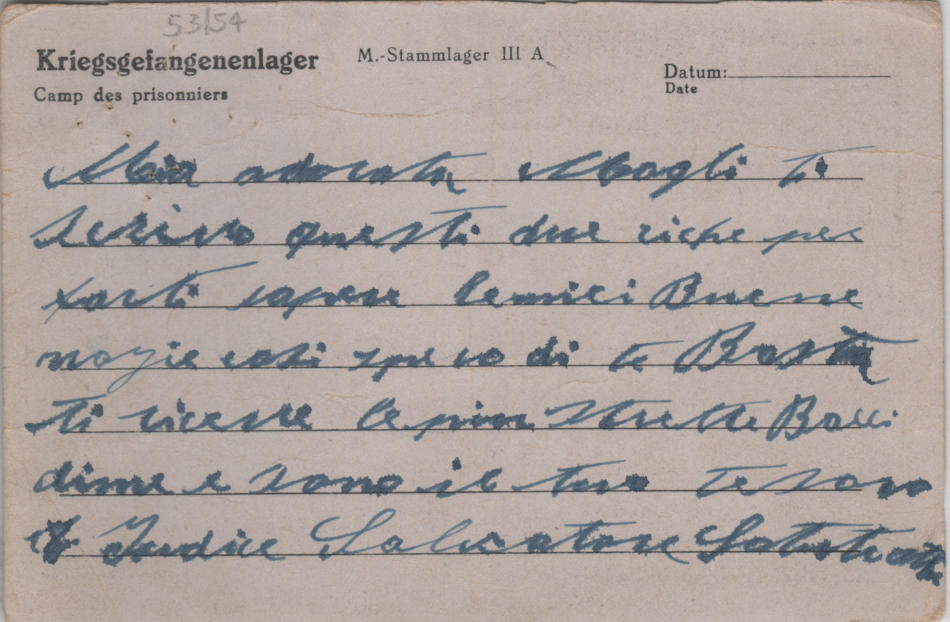 53/54
Kriegsgefangenenlager M.-Stammlager III A
Datum:
Camp des prisonniers
Date
Mia adorata Mogli ti
scrivo questi due riche per
farti sapere lemiei Buone
nozie cosi spero di te Basta
ti riceve le piu strette Baci
dime e sono il tuo tesoro
Iudice Salvatore